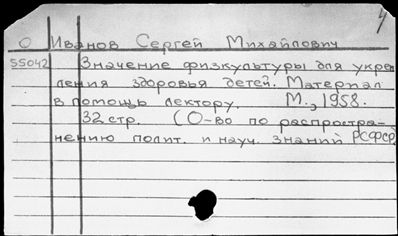 4
О Иванов Сергей Михайлович
55042 Значение физкультуры для укре-
пления здоровья детей. Материал
в помощь лектору. М., 1958.
32 стр. (О-во по распростра-
нению полит. и науч. знаний РСФСР)